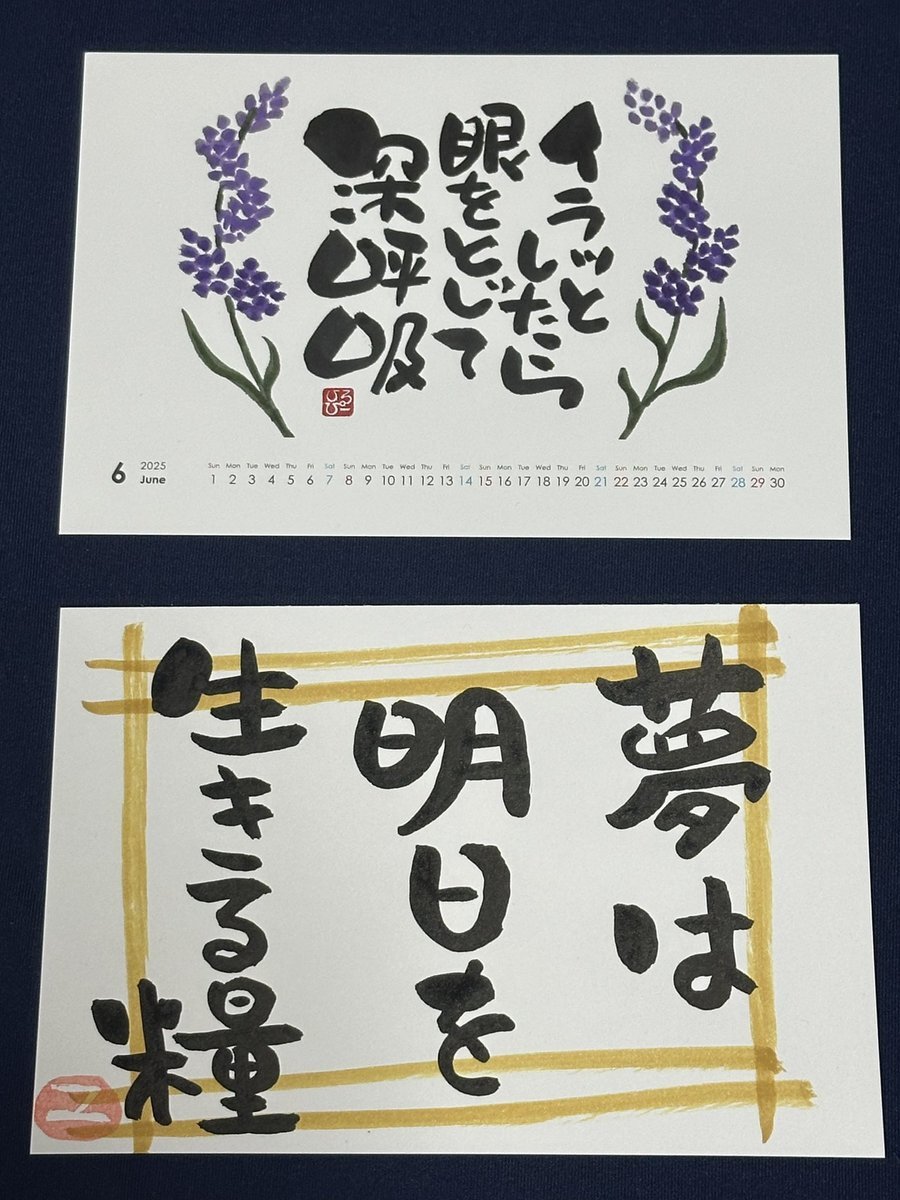 イラッと
したら
眼をとじて
深呼吸
6 2025 June
Sun Mon Tue Wed Thu Fri Sat Sun Mon Tue Wed Thu Fri Sat Sun Mon Tue Wed Thu Fri Sat Sun Mon Tue Wed Thu Fri Sat Sun Mon
1 2 3 4 5 6 7 8 9 10 11 12 13 14 15 16 17 18 19 20 21 22 23 24 25 26 27 28 29 30
夢は
明日を
生きる糧